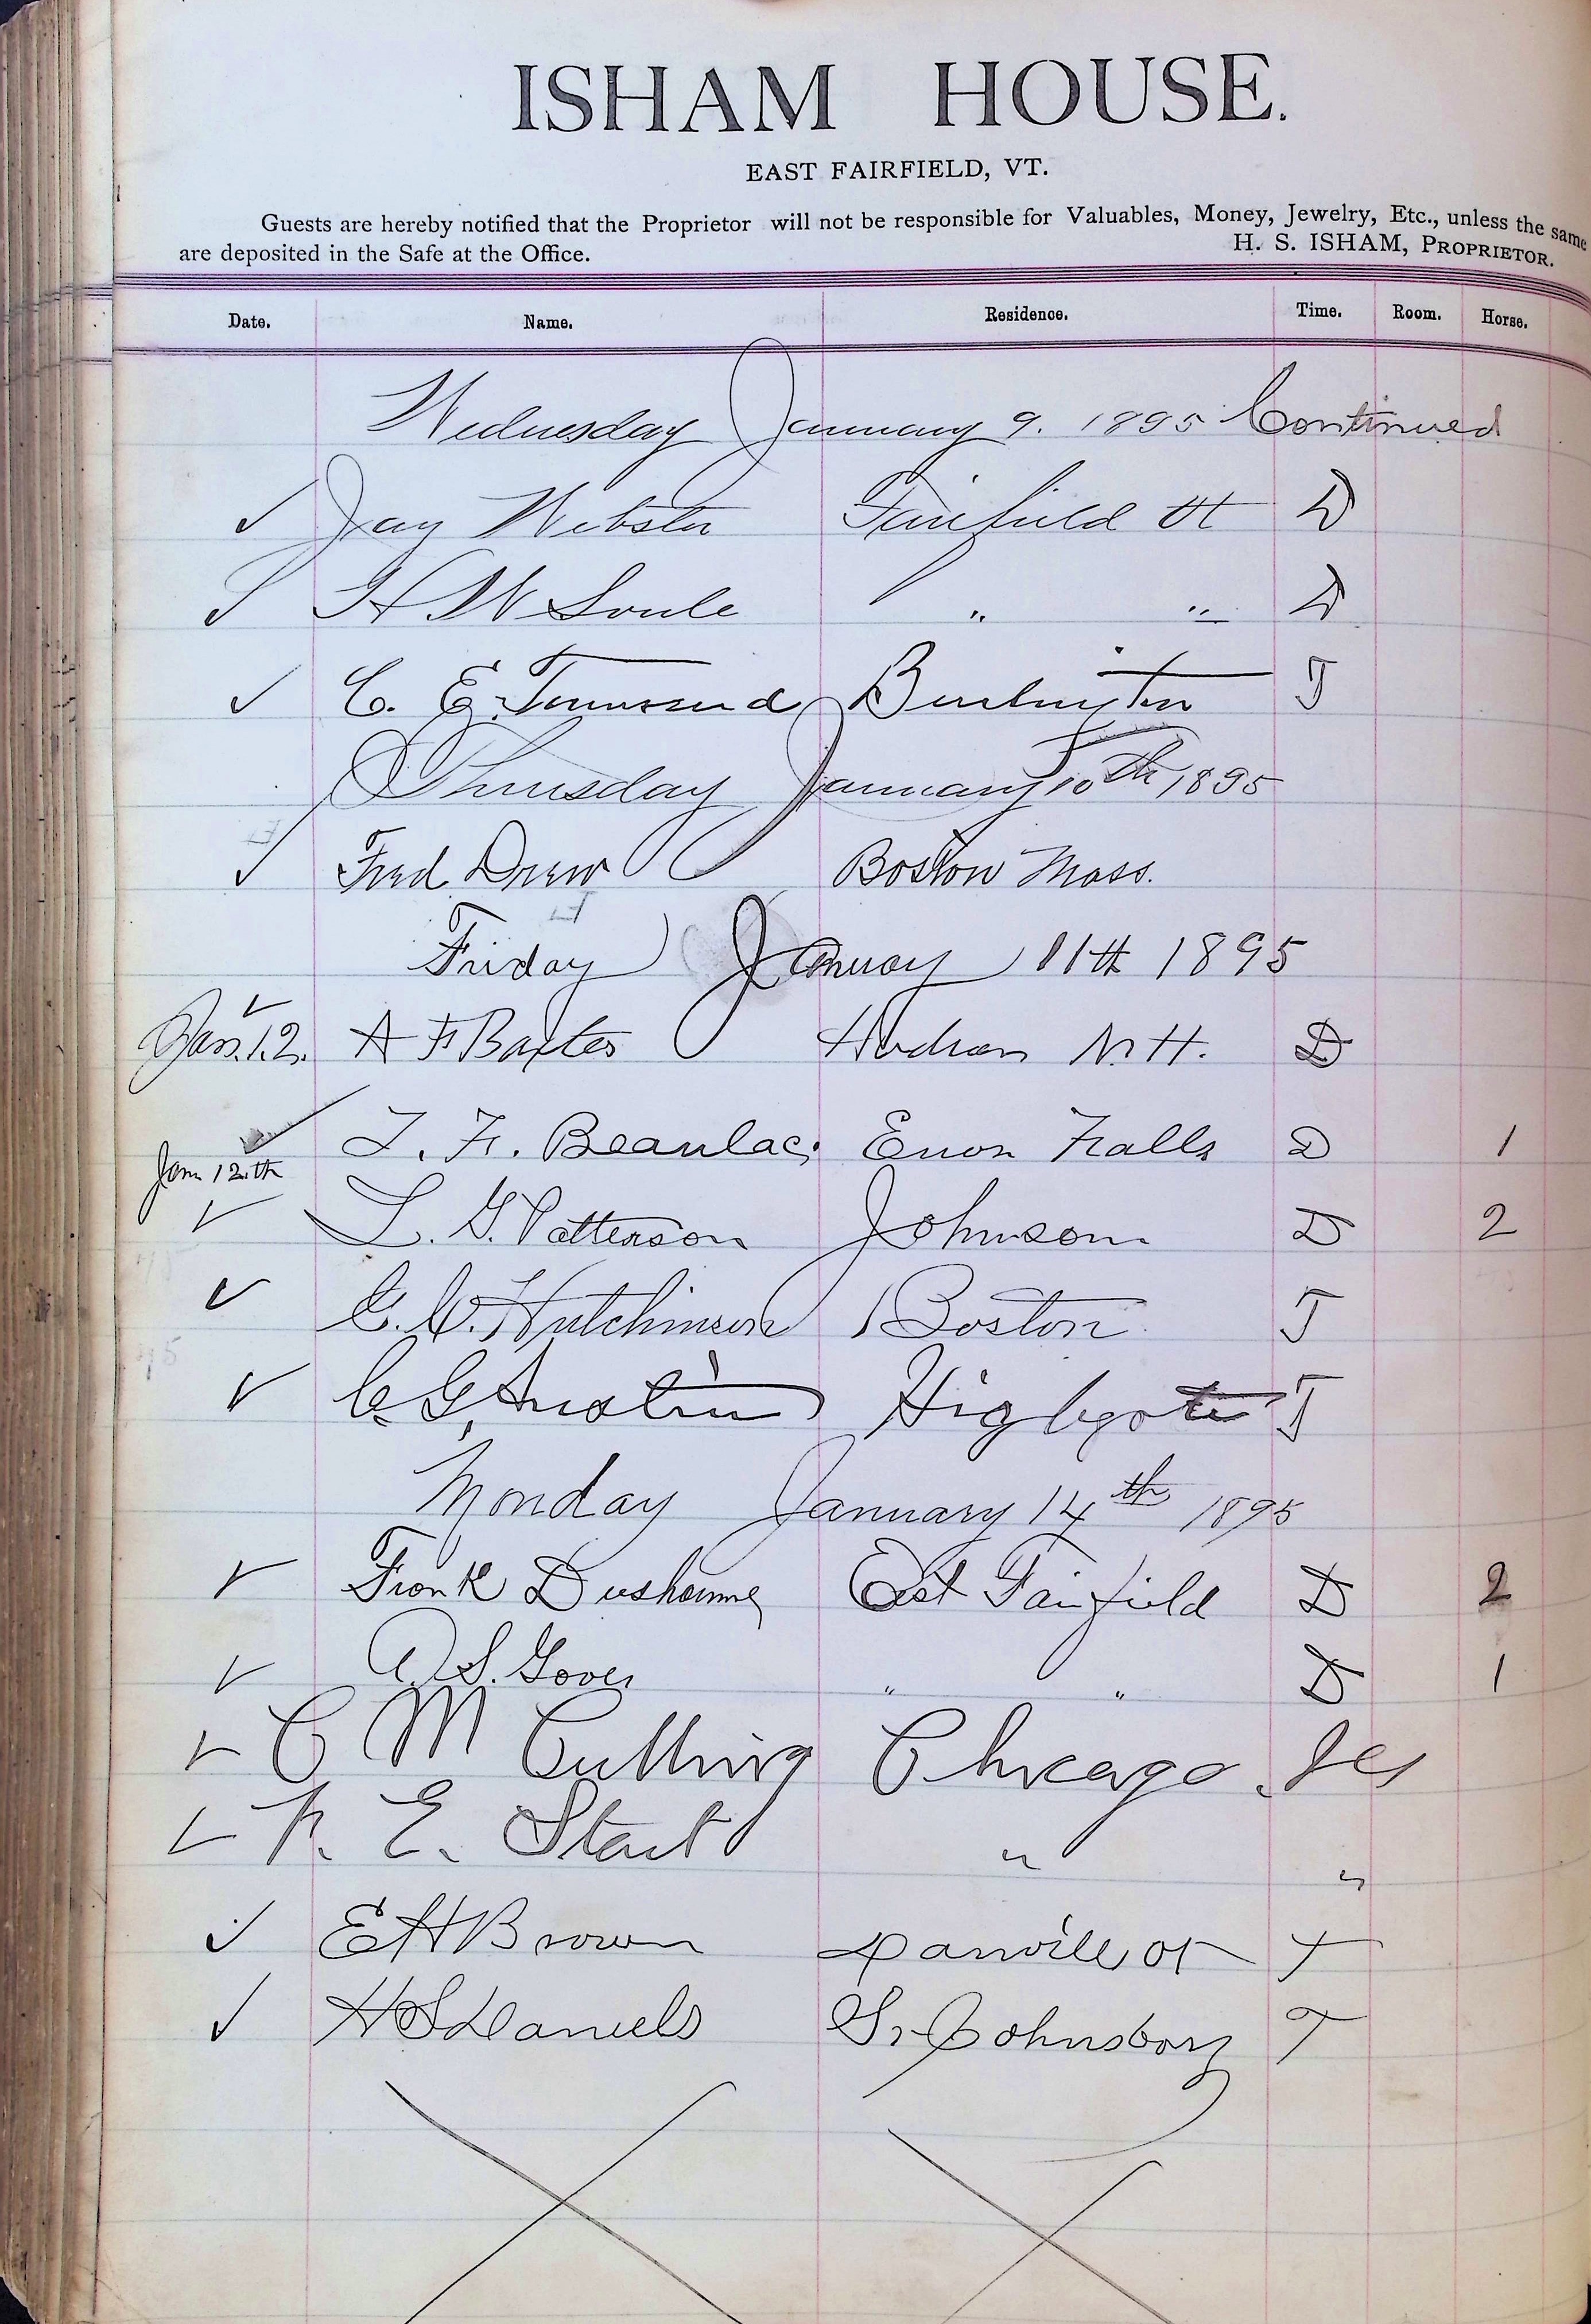 ISHAM HOUSE.
EAST FAIRFIELD, VT.
Guests are hereby notified that the Proprietor will not be responsible for Valuables, Money, Jewelry, Etc., unless the same
are deposited in the Safe at the Office. H. S. ISHAM, PROPRIETOR.
Date. Name. Residence. Time. Room. Horse.
Wednesday January 9. 1895 Continued
✓ Jay Webster Fairfield Vt D
✓ H W Soule " " D
✓ C. E. Townsend Burlington T
Thursday January 10th 1895
✓ Fred Drew Boston Mass.
Friday January 11th 1895
✓ Jan. 12. A F Baxter Hudson N.H. D
✓ T. F. Beaulac. Enon Falls D 1
Jan 12th
✓ L. G. Patterson Johnson D 2
✓ G. C. Hutchinson Boston T
✓ C. G. Austin Highgate T
Monday January 14th 1895
✓ Frank East Fairfield D 2
✓ A. S. Gover " " D 1
✓ C M Cutting Chicago.
✓ E. Start " "
✓ E H Brown Danville Vt T
✓ H S Daniels St Johnsbory T